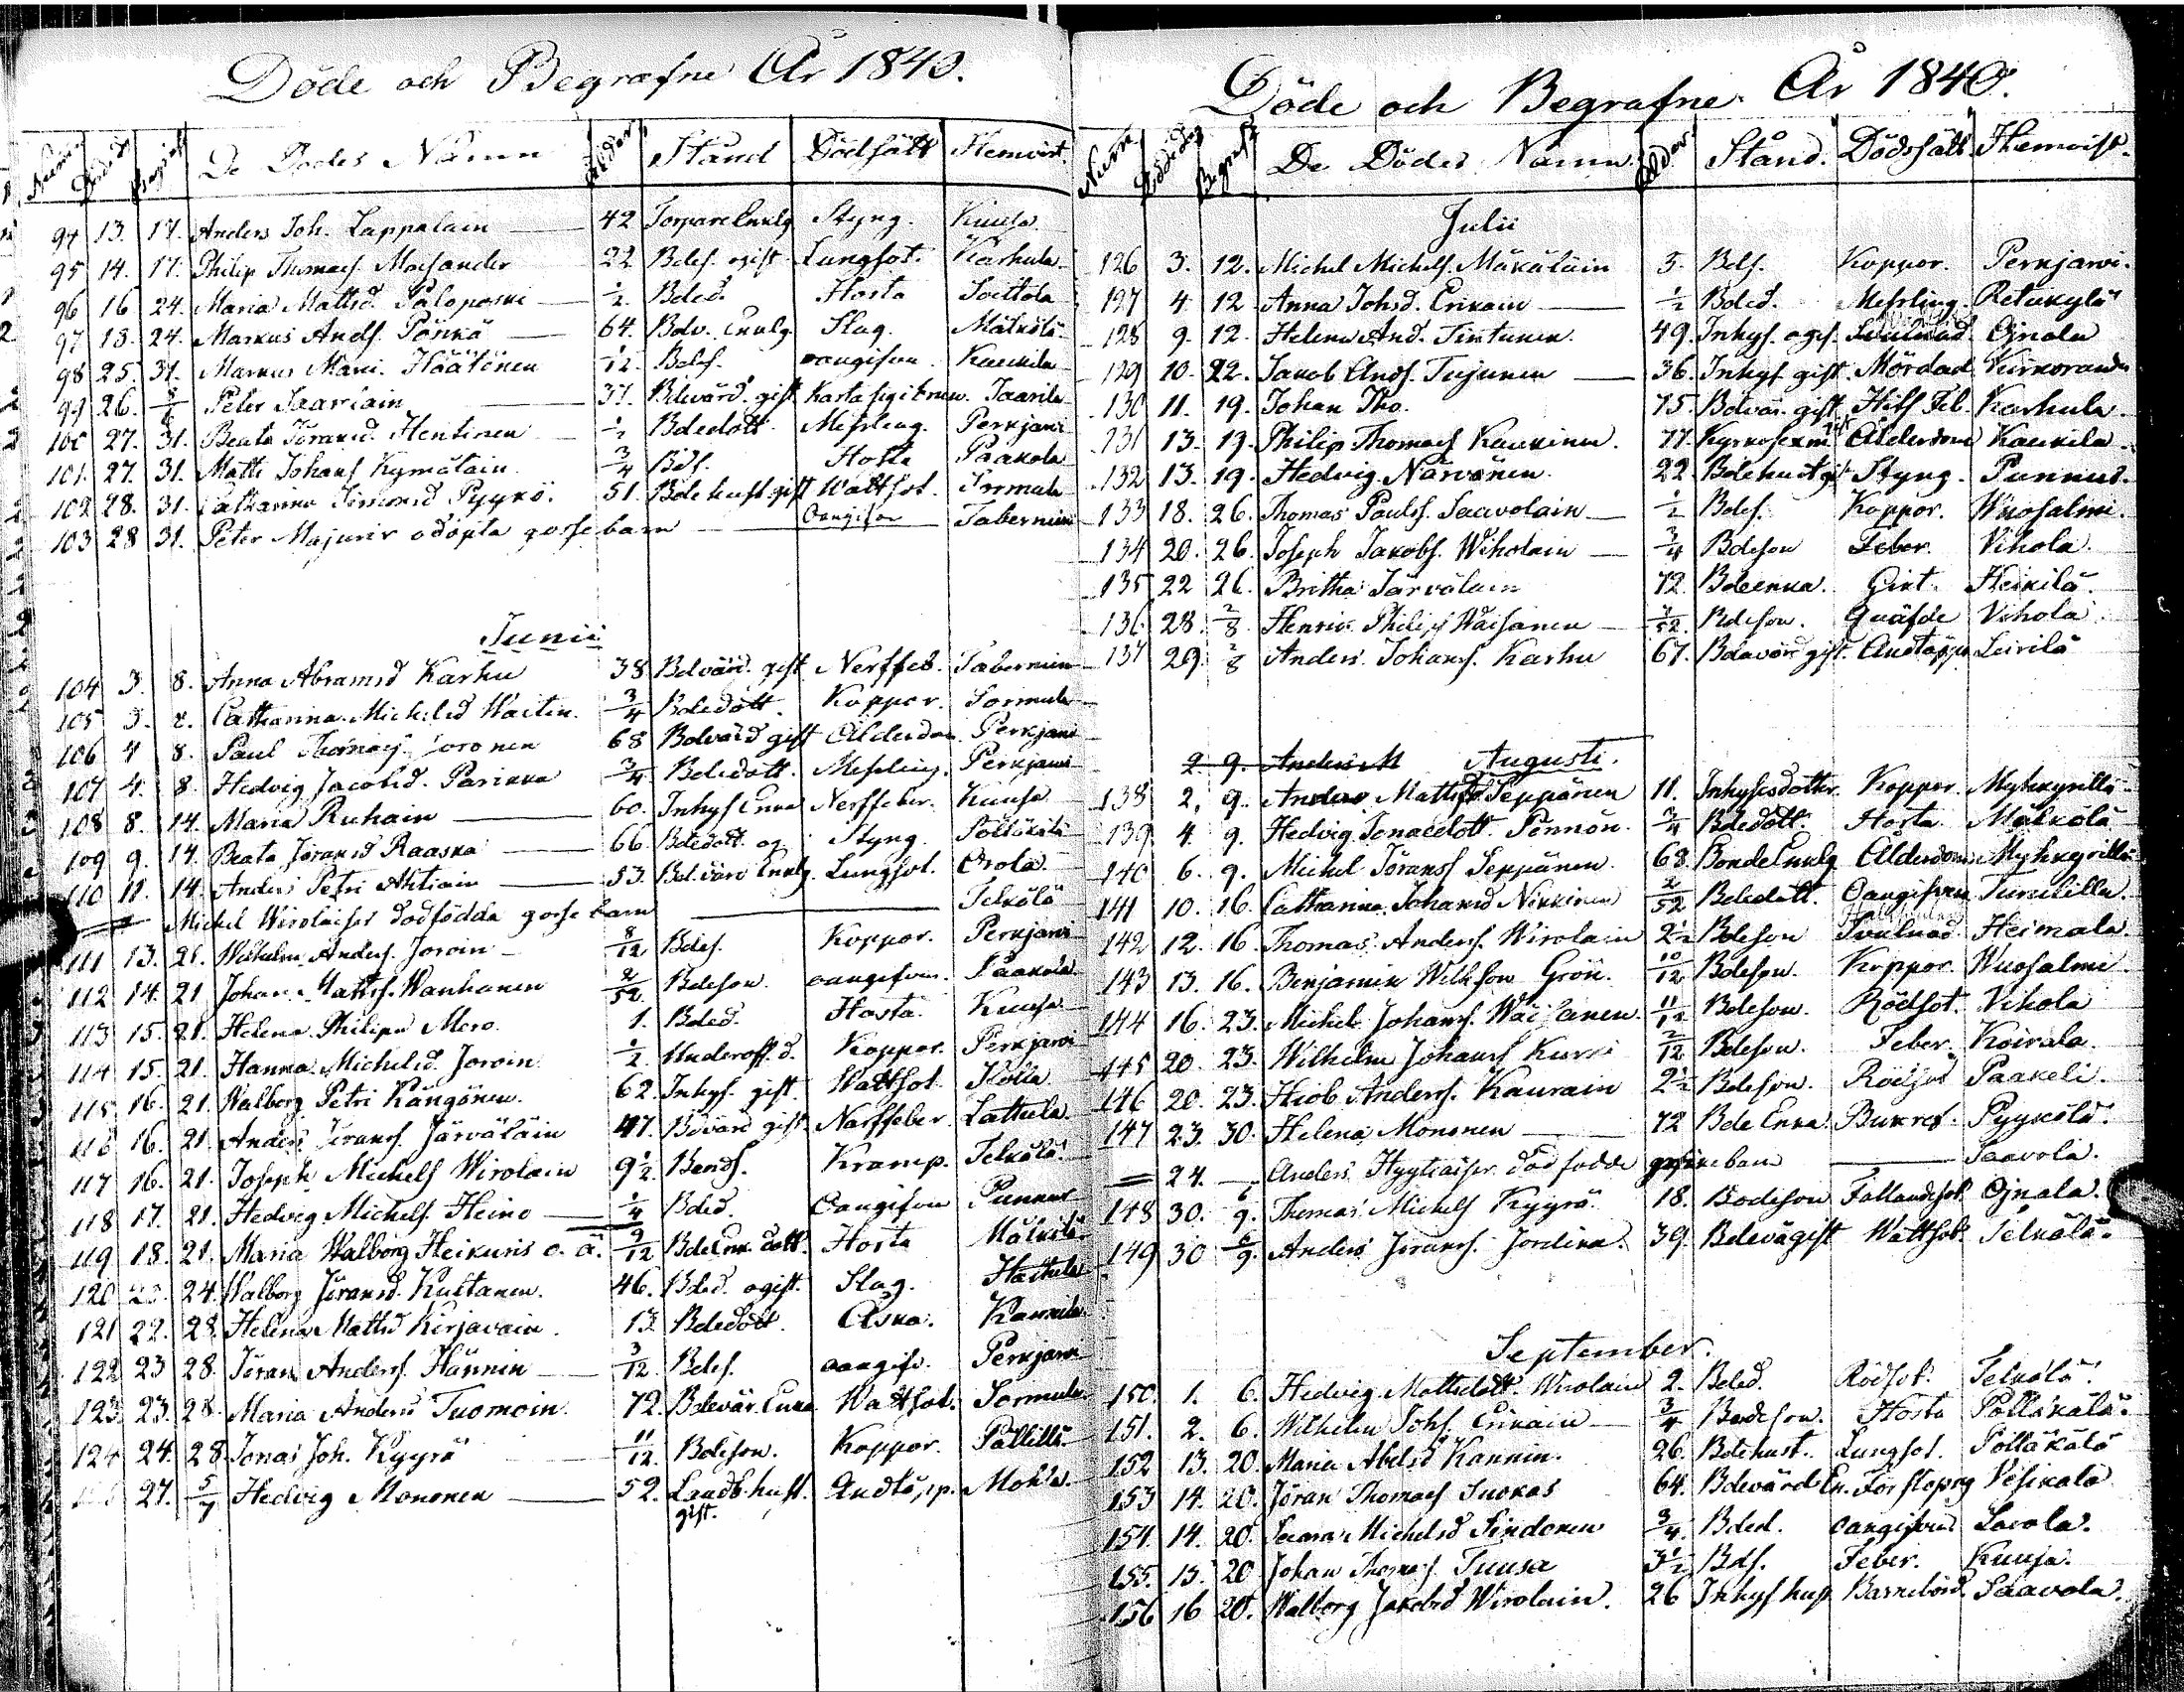 Döde och Begrafne År 1840.
Numr Död Begraf De Dödes Namn Ålder Stånd Dödsätt Hemvist
94 13. 17. Anders Joh. Lappalain 42 Torpare Enklg Styng. Kuusa
95 14. 17. Philip Thomass. Moisander 22 Bdes. ogift Lungsot. Karhula
96 16 24. Maria Mattsd. Paloposki 1/2 Bded. Hosta Soittola
97 18. 24. Markus Ands. Pönkä 64. Bdv. Enklg Slag. Mälkölä
98 25. 31. Markus Häätönen 1/12 Bdes. oangifven Kaukila
99 26. Peter Saarlain 37. Bdevärd. gift Saarila
100 27. 31. Beata Jöransd. Hentinen 1/2 Bdedott. Messling. Perkjärvi
101. 27. 31. Matts Johans Kymäläin 3/4 Bds. Hosta Paakola
102 28. 31. Catharina Simonsd Pyykö. 51. Bdehust. gift Wattsot. Sormula
103 28 31. Peter Majuris odöpta gossebarn Oangifven Tabernien
Junii
104 3. 8. Anna Abramsd Karhu 38 Bdvärd. gift Nerffeb. Tabernien
105 3. 8. Catharina Michelsd Waitin. 3/4 Bdedott. Koppor. Sormula
106 4 8. Paul Thomass Joronen 68 Bdevärd gift Ålderdom Perkjärvi
107 4. 8. Hedvig Jacobsd. Parikka 3/4 Bdedott. Messling. Perkjärvi
108 8. 14. Maria Ruhain 60. Inhys Enka Nerffeber. Kuusa
109 9. 14. Beata Jöransd Raaska 66 Bdedott. og Styng. Pölläkälä
110 11. 14. Anders Petri Ahtiain 53. Bdevärd Enklg. Lungsot. Orola
Michel Wirolaises dödfödda gossebarn Telkölä
111 13. 21. Wilhelm Anders. Joroin 8/12 Bdes. Koppor. Perkjärvi
112 14. 21 Johan Matts. Wanhanen 2/52 Bdeson. oangifven. Paakola
113 15. 21. Helena Philipsd Mero. 1. Bded. Hosta. Kuusa
114 15. 21. Hanna Michelsd. Joroin 1/2 Underoff. d. Koppor. Perkjärvi
115 16. 21. Walborg Petri Kängönen. 62. Inhys. gift Wattsot. Kolla
116 16. 21. Anders Jörans. Järväläin 47. Bdvärd gift Narffeber. Lattula
117 16. 21. Joseph Michels Wirolain 9 1/2 Bands. Kramp. Telkölä
118 17. 21. Hedvig Michels Heino 1/4 Bded. Oangifven Punnus
119 18. 21. Maria Walborg Heikuris o. ä. 9/12 BdeEnk. dott. Hosta Mälkölä
120 23. 24. Walborg Jöransd. Kultanen. 46. Bded. ogift. Slag. Hattula
121 22. 28. Helena Mattsd Kirjavain. 13 Bdedott. Åska. Kaukila
122 23 28. Jöran Anders. Hännin 3/12 Bdes. oangifv. Perkjärvi
123 23. 28. Maria Andersd Tuomoin 72. Bdevär. Enka Wattsot. Sormula
124 24. 28. Jonas Joh. Kyyrä 11/12. Bdeson. Koppor. Pällilä
27. 5/7 Hedvig Mononen 52. Landb. hust. gift. Andtäpp. Mohla.
Döde och Begrafne. År 1840.
Num Dödedag Begrafn De Dödes Namn. Ålder. Stånd. Dödssätt. Hemvist.
Julii
126 3. 12. Michel Michels. Mäkäläin 3. Bds. Koppor. Perkjärvi.
127 4. 12 Anna Johsd. Erikain 1/2 Bded. Messling. Retukylä
128 9. 12. Helena And. Tintunen. 49. Inhys. ogif. Ojnala
129 10. 22. Jakob Ands. Tujunen 36. Inhys gift. Mördad Kirkoranda
130 11. 19. Johan Tho. 75. Bdvär. gift. Hits Feb. Karhula
131 13. 19. Philip Thomass Kaukinen. 77. Ålderdom Kaukila
132 13. 19. Hedvig Närvänen. 22. Bdehust gift Styng. Punnus.
133 18. 26. Thomas Pauls. Saavolain 1/2 Bdes. Koppor. Wuosalmi.
134 20. 26. Joseph Jakobs. Wiholain 3/4 Bdeson Feber. Vihola
135 22 26. Britha Järväläin 72. Bdeenka. Gikt. Heikilä.
136. 28. 2/8 Henric Philips Wäisänen 3/52. Bdeson. Qväfde Vihola
137 29. 2/8 Anders Johans. Karhu 67. Bdevärd gift. Andtäppa Leirilä
2. 9. Anders M
Augusti.
138 2. 9. Anders Mattsd Seppänen 11. Inhysesdotter Koppor. Myhkyrillä
139 4 9. Hedvig Jonaedott. Pennön. 3/4 Bdedott. Hosta Mälkölä
140 6. 9. Michel Jörans Seppänen. 68. Bonde Enklg Ålderdom Myhkyrillä
141 10. 16. Catharina Johansd Nikkinen 2/52 Bdedott. Oangifven Turulilla.
142 12. 16 Thomas Anders. Wirolain 2 1/2 Bdeson Heimala.
143 13. 16. Benjamin Wilhson Grön. 10/12 Bdeson. Koppor. Wuosalmi
144 16. 23. Michel Johans. Wäisänen. 11/12 Bdeson. Rödsot. Vihola
145 20 23. Wilhelm Johans Kurri 2/12 Bdeson. Feber. Koirala.
146 20. 23. Hiob Anders. Kaurain 2 1/2 Bdeson. Rödsot Paakeli.
147 23. 30. Helena Mononen 72 Bde Enka. Bukref. Pyykölä.
24. Anders Hyytiaiser dödfödde gossebarn Saavola.
148 30. 6/9. Thomas Michels Kyyrä. 18. Bodeson Fallandesot Ojnala.
149 30 6/9. Anders Jörans. Jordika. 39. Bdevä gift Wattsot. Telkälä.
September.
150. 1. 6. Hedvig Mattsdott. Wirolain 2. Bded. Rödsot. Telkölä.
151. 2. 6. Wilhelm Johs. Erikain 3/4 Bodeson. Hosta Pölläkälä.
152 13. 20. Maria Abelsd Kannin. 26. Bdehust. Lungsot. Pölläkälä
153 14. 20. Jöran Thomass Suokas 64. Bdevärd En. Förstopng Vesikala
154. 14. 20. Saara Michelsd Sindonen 3/4. Bded. oangifven Lavola.
155. 15. 20 Johan Thomas. Tuusa 3 1/2 Bds. Feber. Kuusa.
156 16 20. Walborg Jakobsd Wirolain. 26 Inhys hus Barnsbörd. Saavola.